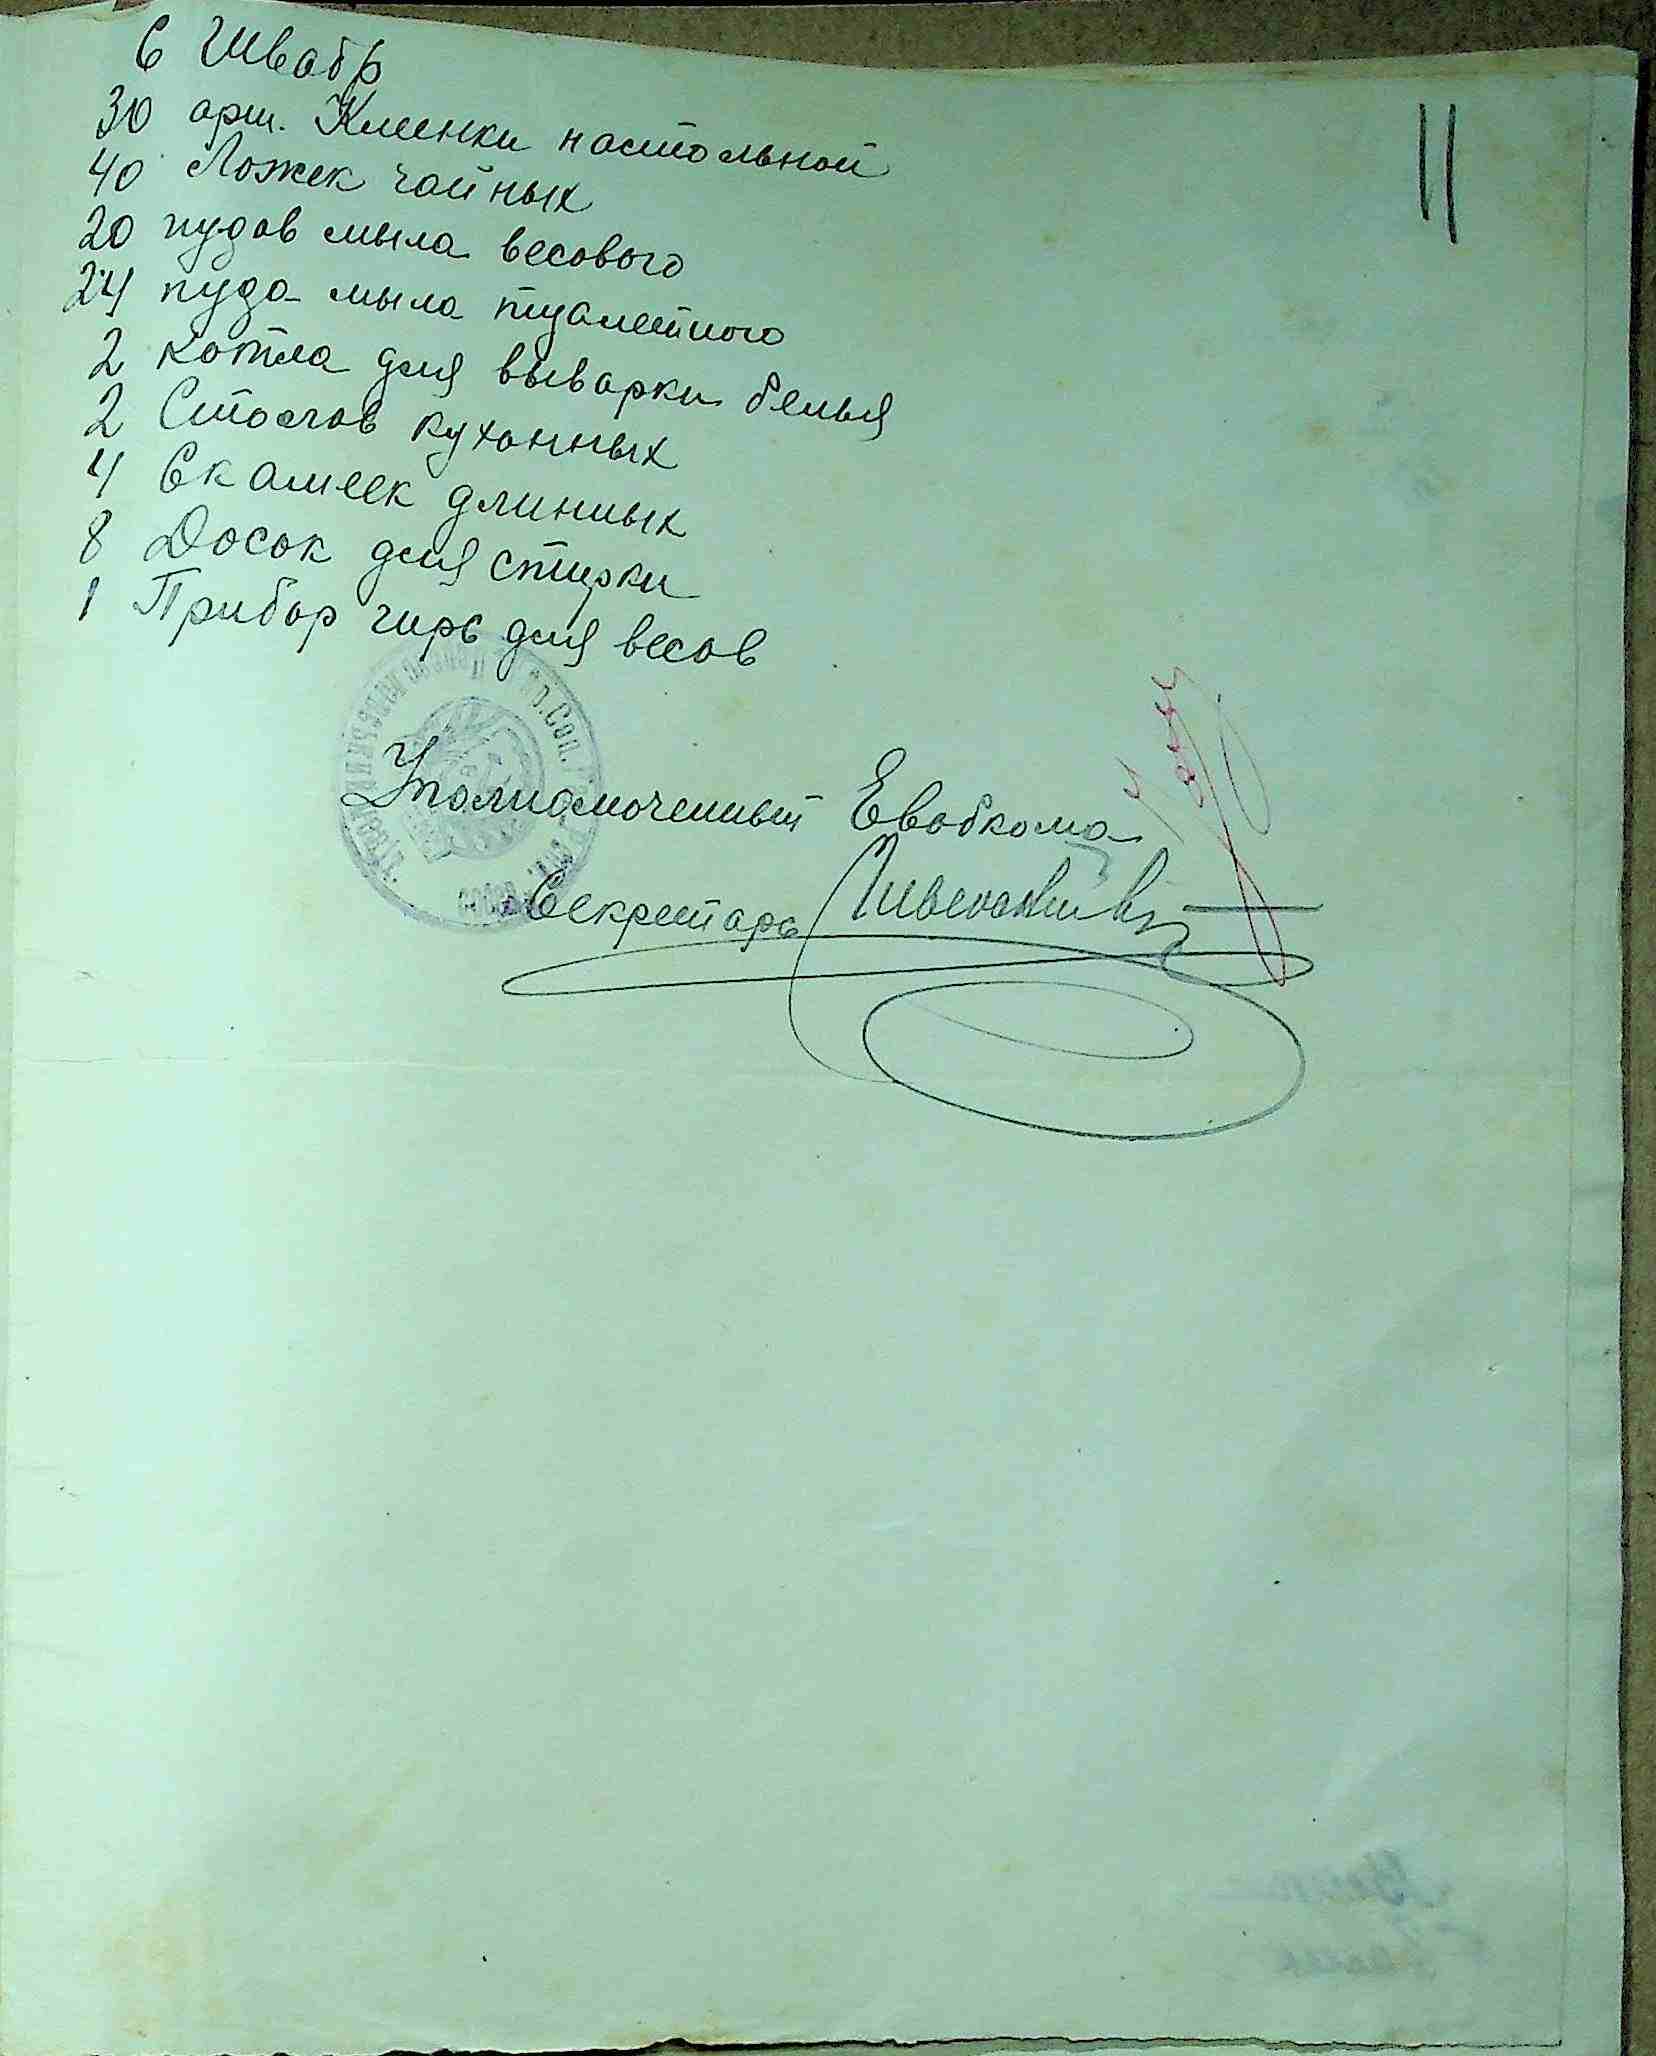 11
6 Швабр
30 арш. Клеенки настольной
40 Ложек чайных
20 пудов мыла весового
24 пуда мыла туалетного
2 Котла для выварки белья
2 Столов кухонных
4 Скамеек длинных
8 Досок для стирки
1 Прибор гирь для весов
Уполномоченный Евобкома
Секретарь